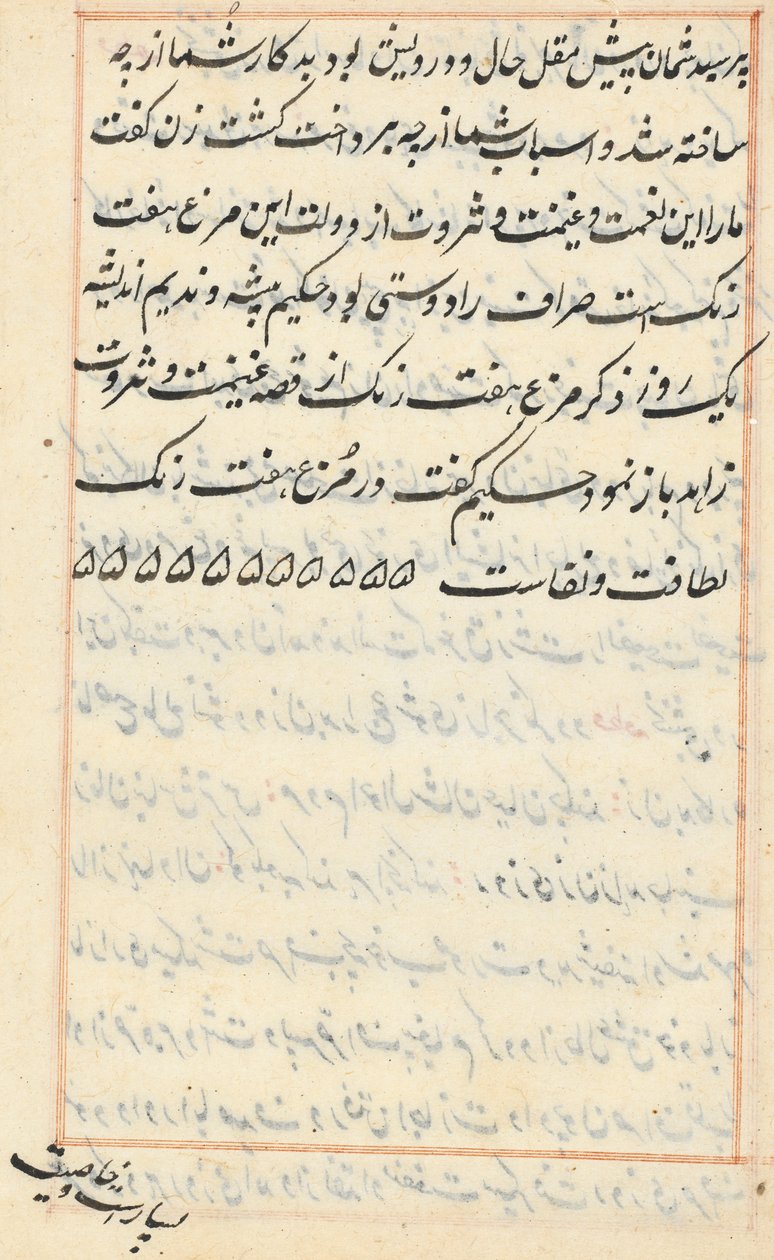 پرسید شمایان پیش مقل حال و درویش بودید کار شما از چه
ساخته شد و اسباب شما از چه پرداخت گشت زن گفت
ما را این نعمت و غنیمت و ثروت از دولت این مرغ هفت
رنک است صراف را دوستی بود حکیم پیشه و ندیم اندیشه
یک روز ذکر مرغ هفت رنک از قصه غنیمت و ثروت
زاهد باز نمود حکیم گفت در مُرغ هفت رنک
لطافت و نفاست ۵۵۵۵۵۵۵۵۵۵۵
بسیار است و خاصیت